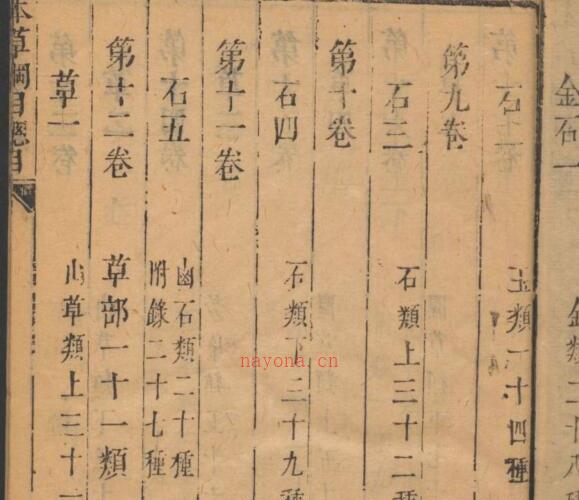 金石一 金類二十八
石二 玉類一十四種
第九卷
石三 石類上三十二種
第十卷
石四 石類下三十九種
第十一卷
石五 鹵石類二十種
附錄二十七種
第十二卷 草部一十一類
草一 山草類上三十一
本草綱目總目
nayona.cn